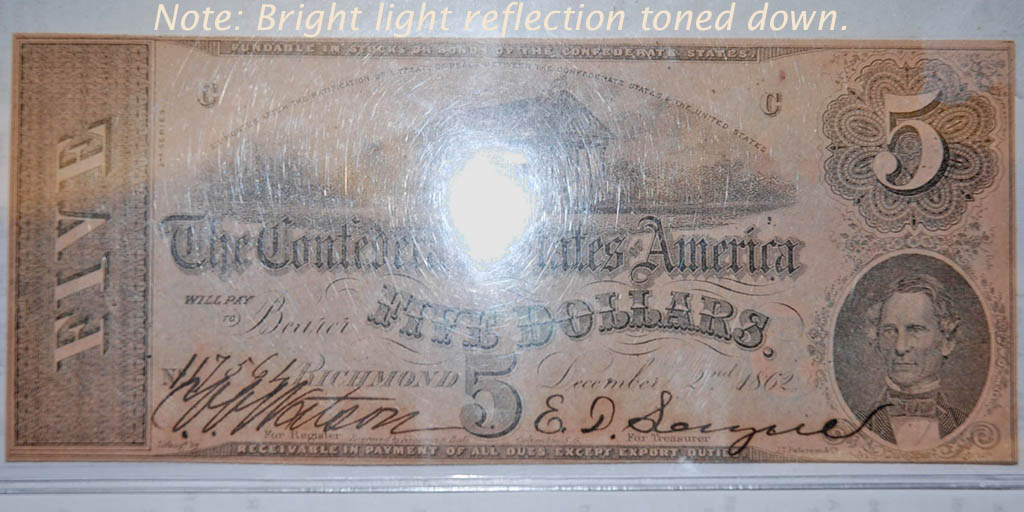 Note: Bright light reflection toned down.
FUNDABLE IN STOCKS OR BONDS OF THE CONFEDERATE STATES
AFTER THE RATIFICATION OF A TREATY OF PEACE BETWEEN THE CONFEDERATE STATES & THE UNITED STATES
C C
2nd SERIES
5
FIVE
The Confeder tates of America
WILL PAY
TO Bearer
FIVE DOLLARS.
No 117564 RICHMOND
5
December 2nd 1862
For Register
For Treasurer
RECEIVABLE IN PAYMENT OF ALL DUES EXCEPT EXPORT DUTIES